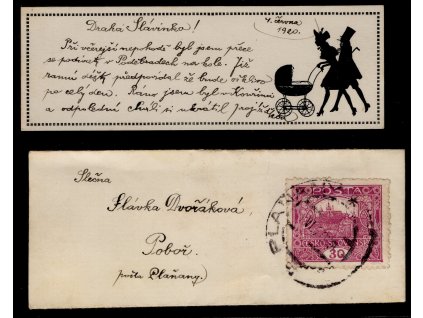 Drahá Slávinko!
4. června
1920.
Při včerejší nepohodě byl jsem přece
se podívat v Poděbradech na kole. Již
ranní déšť předpovídal že bude
po celý den. Ráno jsem byl v Kouřimi
a odpoledne si ukrátil
Slečna
Slávka Dvořáková,
Poboř.
pošta Plaňany.
POŠTA
ČESKO-SLOVENSKÁ
30
PLAŇANY